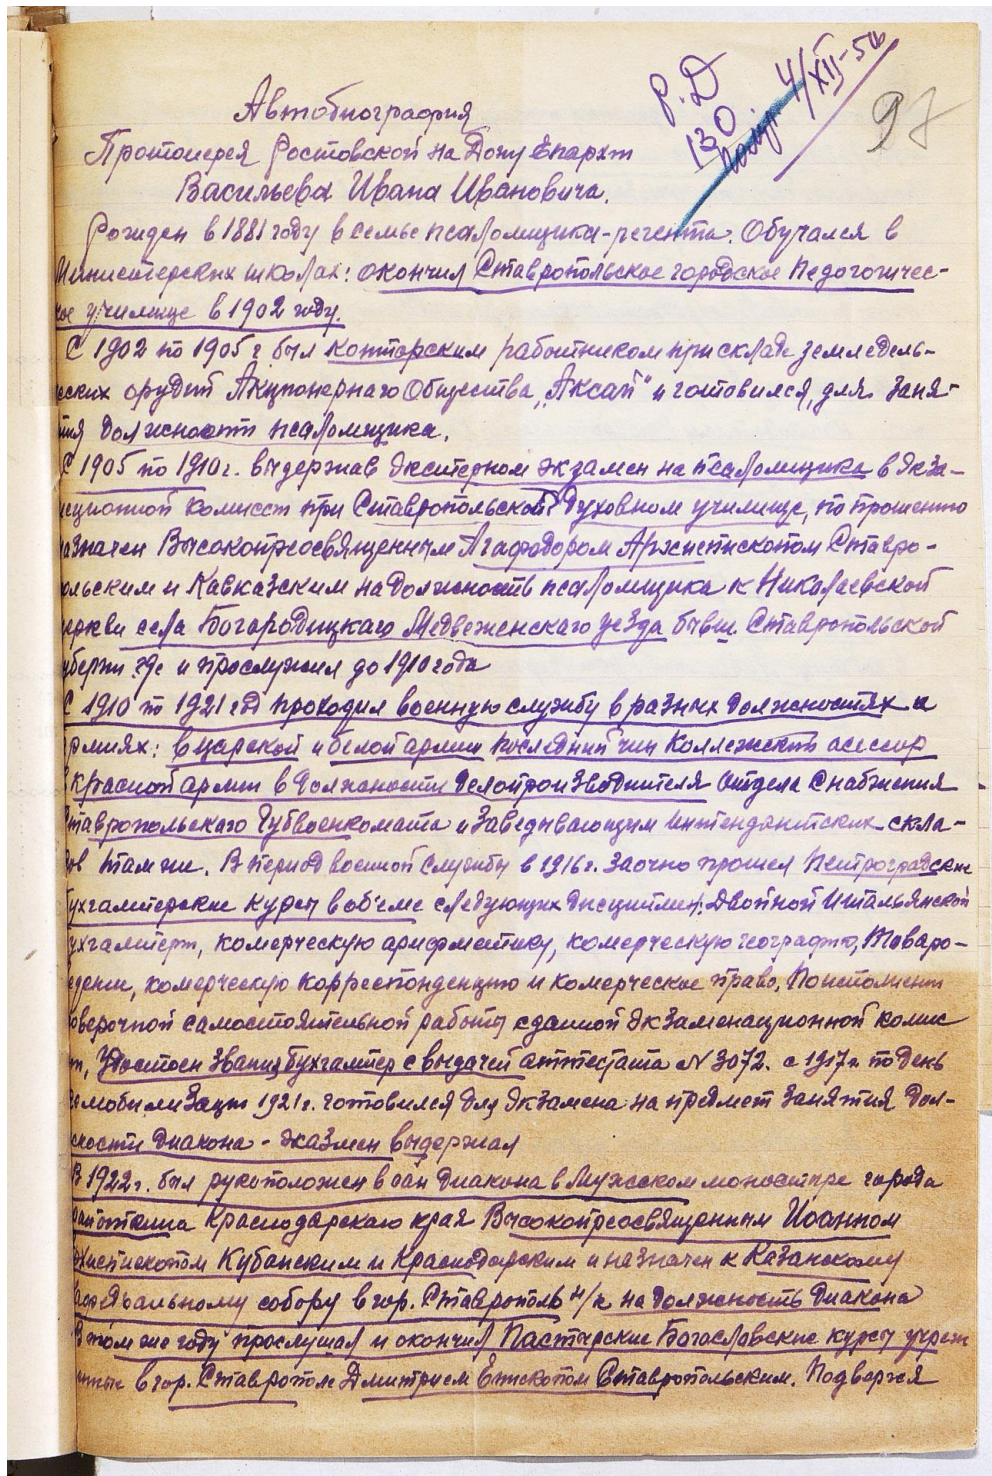 Р.Д
130
4/XII-56
97
Автобиография
Протоиерея Ростовской на Дону Епархии
Васильева Ивана Ивановича.
Рожден в 1881 году в семье псаломщика-регента. Обучался в
Министерских школах: окончил Ставропольское городское Педогогичес-
кое училище в 1902 году.
С 1902 по 1905 г был конторским работником при складе земледель-
ческих орудий Акционернаго Общества „Аксай" и готовился, для заня-
тия должности псаломщика.
С 1905 по 1910 г. выдержав экстерном экзамен на псаломщика в экза-
ционной комиссии при Ставропольской Духовном училище, по прошению
назначен Высокопреосвященным Агафодором Архиепископом Ставро-
польским и Кавказским на должность псаломщика к Николаевской
церкви села Богородицкаго Медвеженскаго уезда бывш. Ставропольской
губерни где и прослужил до 1910 года
С 1910 по 1921 год проходил военную службу в разных должностях и
армиях: в царской и белой армии последний чин Коллежский асессор
в красной армии в должности делопроизводителя Отдела Снабжения
Ставропольскаго Губвоенкомата и Заведывающим Интендантских скла-
дов там же. В период военной службы в 1916 г. заочно прошел Петроградские
бухгалтерские курсы в об'еме следующих дисциплин: Двойной Итальянской
бухгалтери, комерческую арифметику, комерческую географию, Товаро-
ведение, комерческую корреспонденцию и комерческое право. По исполнении
поверочной самостоятельной работы сданной экзаменационной комис
сии, удостоен звания бухгалтер с выдачей аттестата № 3072. с 1917 г. по день
демобилизации 1921 г. готовился для экзамена на предмет занятия дол-
жности диакона - экзамен выдержал
В 1922 г. был рукоположен в сан диакона в Мужском монастыре города
Краснодарскаго края Высокопреосвященным Иоанном
Архиепископом Кубанским и Краснодарским и назначен к Казанскому
Кафедральному собору в гор. Ставрополь н/к на должность диакона
В том же году прослушал и окончил Пастырские Богословские курсы учреж
денные в гор. Ставрополе Димитрием Епископом Ставропольским. Подвергся